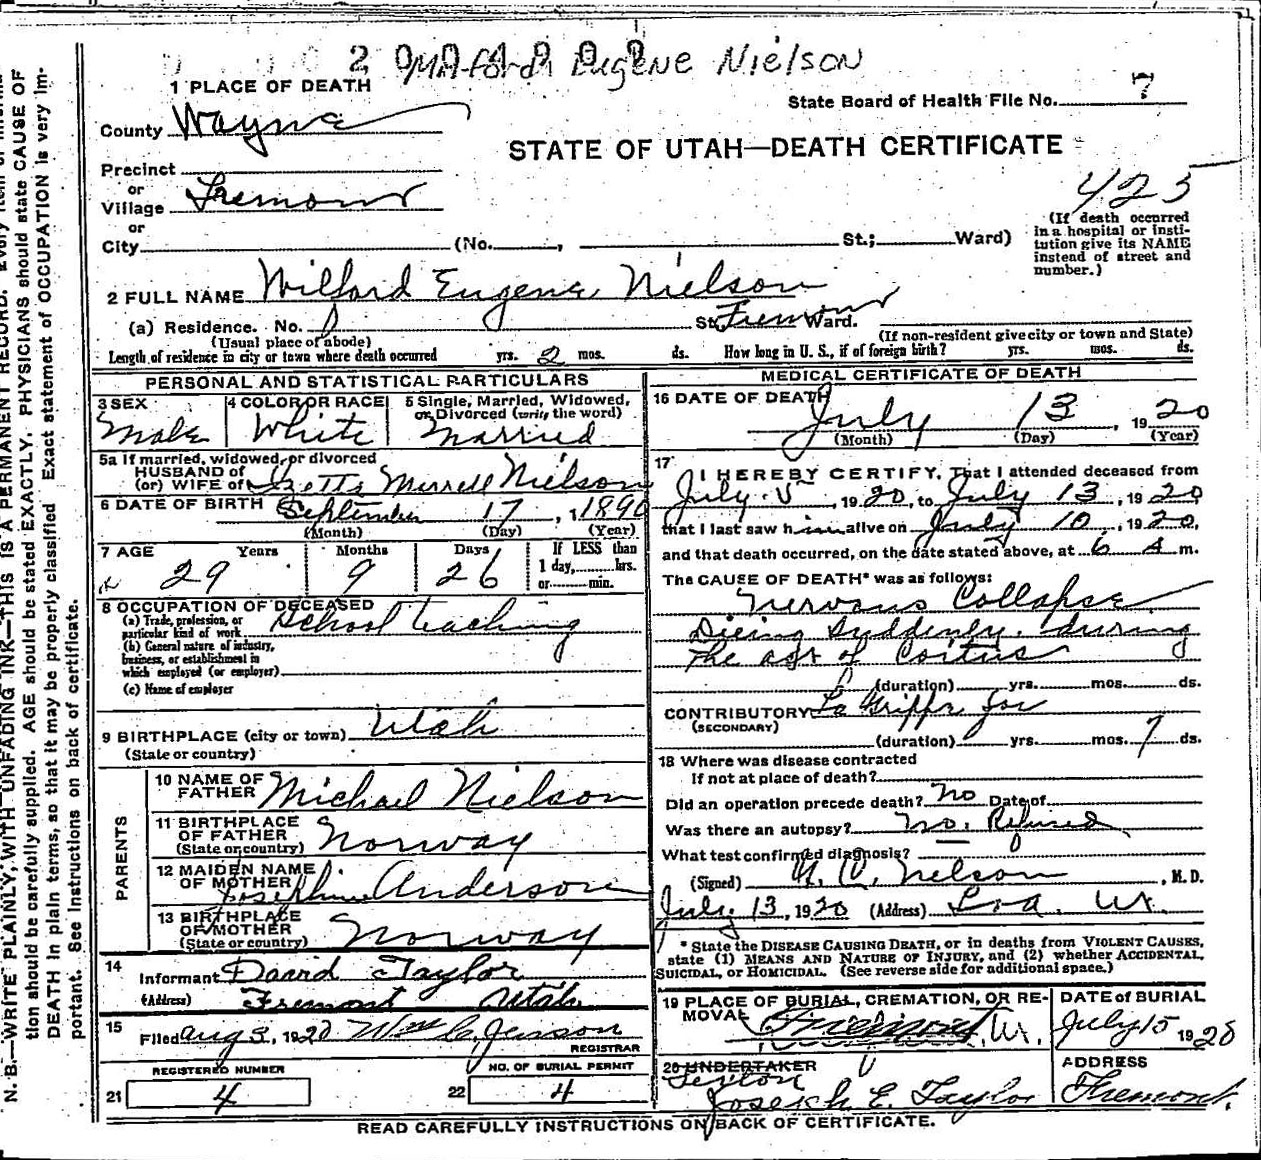 2 Eugene Nielson
1 PLACE OF DEATH
State Board of Health File No. 7
County Wayne
STATE OF UTAH—DEATH CERTIFICATE
Precinct
or
Village Fremont
425
or
City (No. , St.; Ward)
(If death occurred in a hospital or insti-
tution give its NAME
instead of street and
number.)
2 FULL NAME Wilford Eugene Nielson
(a) Residence. No. St. Fremont Ward.
(Usual place of abode) (If non-resident give city or town and State)
Length of residence in city or town where death occurred yrs. 2 mos. ds. How long in U. S., if of foreign birth? yrs. mos. ds.
PERSONAL AND STATISTICAL PARTICULARS
3 SEX Male
4 COLOR OR RACE White
5 Single, Married, Widowed,
or Divorced (write the word)
Married
5a If married, widowed, or divorced
HUSBAND of
(or) WIFE of Merrell Nielson
6 DATE OF BIRTH September 17, 1890
(Month) (Day) (Year)
7 AGE Years Months Days If LESS than
1 day, hrs.
or min.
29 9 26
8 OCCUPATION OF DECEASED
(a) Trade, profession, or
particular kind of work School teaching
(b) General nature of industry,
business, or establishment in
which employed (or employer)
(c) Name of employer
9 BIRTHPLACE (city or town) Utah
(State or country)
PARENTS
10 NAME OF
FATHER Michael Nielson
11 BIRTHPLACE
OF FATHER
(State or country) Norway
12 MAIDEN NAME
OF MOTHER Josephine Anderson
13 BIRTHPLACE
OF MOTHER
(State or country) Norway
14
Informant David Taylor
(Address) Fremont Utah
15
Filed Aug 3, 1920 Wm C. Jenson
REGISTRAR
REGISTERED NUMBER
21 4
NO. OF BURIAL PERMIT
22 4
MEDICAL CERTIFICATE OF DEATH
16 DATE OF DEATH
July 13, 1920
(Month) (Day) (Year)
17
I HEREBY CERTIFY, That I attended deceased from
July 5, 1920, to July 13, 1920
that I last saw him alive on July 10, 1920,
and that death occurred, on the date stated above, at 6 A m.
The CAUSE OF DEATH* was as follows:
Nervous Collapse
Dieing Suddenly during
the act of Coitus
(duration) yrs. mos. ds.
CONTRIBUTORY La Grippe for
(SECONDARY)
(duration) yrs. mos. 7 ds.
18 Where was disease contracted
if not at place of death?
Did an operation precede death? No Date of
Was there an autopsy? No. Refused
What test confirmed diagnosis?
(Signed) Nelson, M.D.
July 13, 1920 (Address) Loa. Ut.
* State the DISEASE CAUSING DEATH, or in deaths from VIOLENT CAUSES,
state (1) MEANS AND NATURE OF INJURY, and (2) whether ACCIDENTAL,
SUICIDAL, or HOMICIDAL. (See reverse side for additional space.)
19 PLACE OF BURIAL, CREMATION, OR RE-
MOVAL Fremont, Ut.
DATE of BURIAL
July 15 1920
20 UNDERTAKER
Sexton
Joseph E. Taylor
ADDRESS
Fremont.
READ CAREFULLY INSTRUCTIONS ON BACK OF CERTIFICATE.
N. B.—WRITE PLAINLY, WITH UNFADING INK—THIS IS A PERMANENT RECORD. Every item of
tion should be carefully supplied. AGE should be stated EXACTLY. PHYSICIANS should state CAUSE OF
DEATH in plain terms, so that it may be properly classified. Exact statement of OCCUPATION is very im-
portant. See instructions on back of certificate.